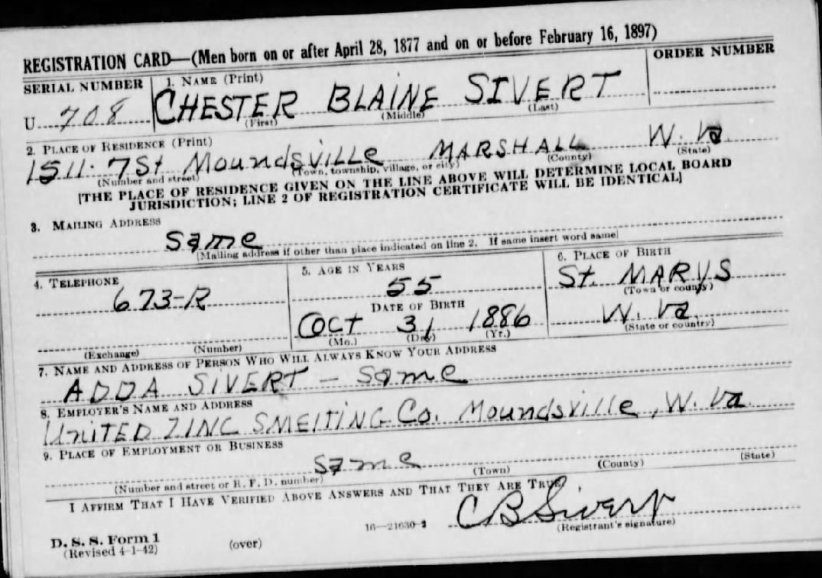 REGISTRATION CARD—(Men born on or after April 28, 1877 and on or before February 16, 1897)
SERIAL NUMBER
1. NAME (Print)
ORDER NUMBER
U 708
CHESTER BLAINE SIVERT
(First) (Middle) (Last)
2. PLACE OF RESIDENCE (Print)
1511-7 St Moundsville MARSHALL W. Va
(Number and street) (Town, township, village, or city) (County) (State)
[THE PLACE OF RESIDENCE GIVEN ON THE LINE ABOVE WILL DETERMINE LOCAL BOARD
JURISDICTION; LINE 2 OF REGISTRATION CERTIFICATE WILL BE IDENTICAL]
3. MAILING ADDRESS
Same
[Mailing address if other than place indicated on line 2. If same insert word same]
4. TELEPHONE
5. AGE IN YEARS
6. PLACE OF BIRTH
673-R
55
St. MARYS
(Town or county)
DATE OF BIRTH
Oct 31 1886
W. Va.
(Exchange) (Number)
(Mo.) (Day) (Yr.)
(State or country)
7. NAME AND ADDRESS OF PERSON WHO WILL ALWAYS KNOW YOUR ADDRESS
ADDA SIVERT - Same
8. EMPLOYER'S NAME AND ADDRESS
UNITED ZINC SMElTING Co. Moundsville, W. Va.
9. PLACE OF EMPLOYMENT OR BUSINESS
Same
(Number and street or R. F. D. number) (Town) (County) (State)
I AFFIRM THAT I HAVE VERIFIED ABOVE ANSWERS AND THAT THEY ARE TRUE.
CB Sivert
D. S. S. Form 1
(Revised 4-1-42)
(over)
16—21630-2
(Registrant's signature)